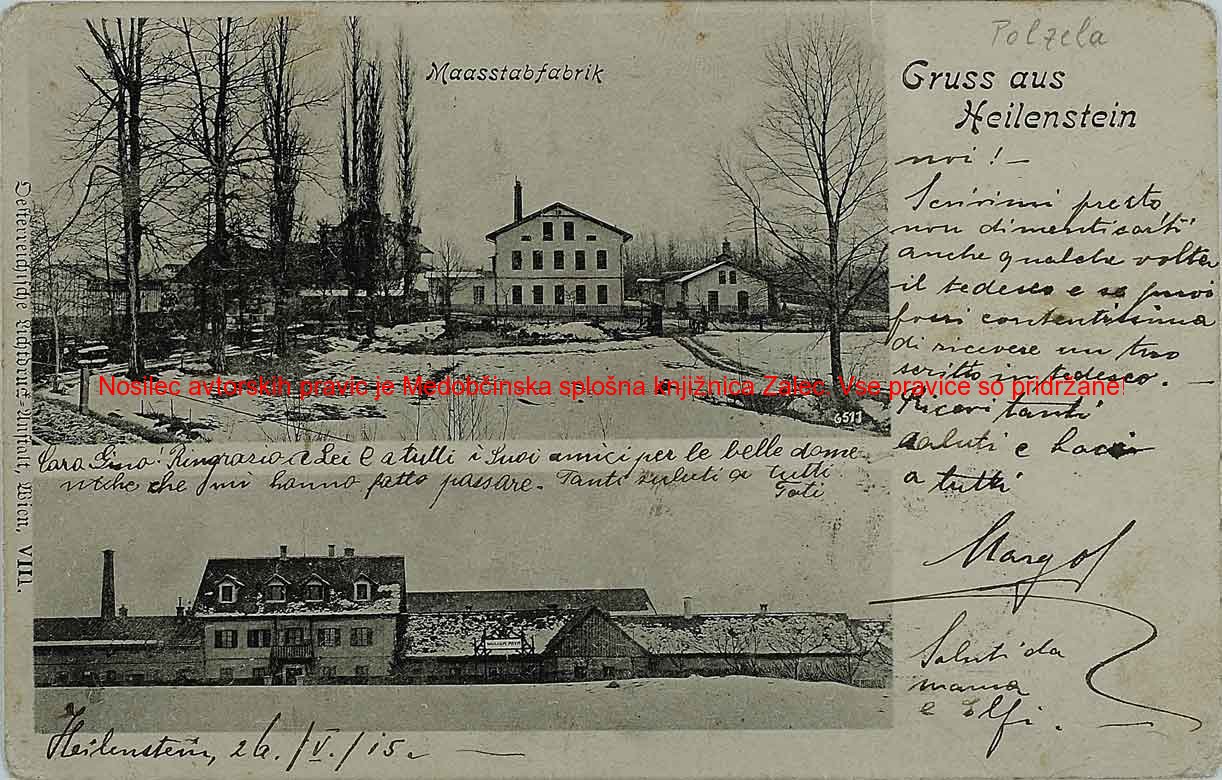 Polzela
Maasstabfabrik
Gruss aus
Heilenstein
noi! –
Scrivimi presto
non dimenticarti
anche qualche volta
il tedesco e se puoi
fossi contentissima
di ricevere un tuo
scritto in tedesco. –
Ricevi tanti
saluti e baci
a tutti
Margot
Saluti da
mama
e Elfi.
Nosilec avtorskih pravic je Medobčinska splošna knjižnica Žalec. Vse pravice so pridržane!
6511
Cara Gino! Ringrazio a Lei e a tutti i Suoi amici per le belle dome-
niche che mi hanno fatto passare. Tanti saluti a tutti
Toti
Heilenstein, 26./V./15.
Oesterreichische Lichtdruck-Anstalt, Wien, VIII.